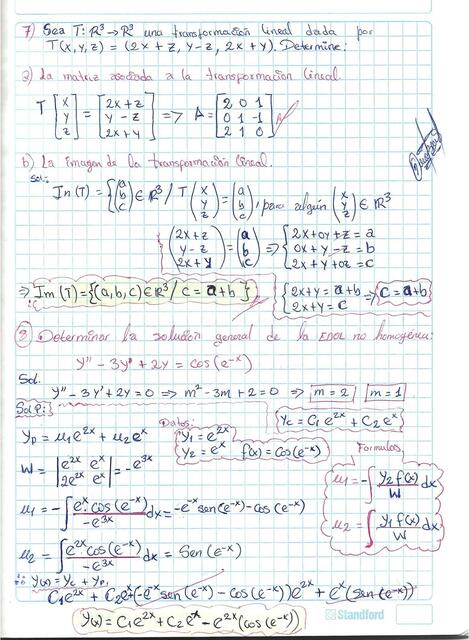 7) Sea T: ℝ³→ℝ³ una transformación lineal dada por
T(x,y,z) = (2x+z, y-z, 2x+y). Determine:
a) La matriz asociada a la transformación lineal.
T [x y z] = [2x+z y-z 2x+y] => A = [2 0 1 0 1 -1 2 1 0]
b) La imagen de la transformación lineal.
Sol:
Im(T) = {(a b c) ∈ ℝ³ / T(x y z) = (a b c), para algún (x y z) ∈ ℝ³
(2x+z y-z 2x+y) = (a b c) => {2x+0y+z=a 0x+y-z=b 2x+y+0z=c
=> Im(T) = {(a,b,c) ∈ ℝ³ / c = a+b } {2x+y=a+b 2x+y=c => c=a+b
8) Determinar la solución general de la EDOL no homogénea:
y'' - 3y' + 2y = cos(e^-x)
Sol.
y'' - 3y' + 2y = 0 => m² - 3m + 2 = 0 => m = 2 m = 1
Sol P: Yc = C1e^2x + C2e^x
Datos:
yp = μ1e^2x + μ2e^x y1 = e^2x
y2 = e^x f(x) = Cos(e^-x) Formulas,
W = |e^2x e^x 2e^2x e^x| = -e^3x
μ1 = -∫ y2 f(x)/W dx
μ1 = -∫ e^x cos(e^-x)/-e^3x dx = -e^-x sen(e^-x) - cos(e^-x)
μ2 = ∫ y1 f(x)/W dx
μ2 = ∫ e^2x cos(e^-x)/-e^3x dx = Sen(e^-x)
∴ y(x) = yc + yp,
C1e^2x + C2e^x + (-e^-x sen(e^-x) - cos(e^-x))e^2x + e^x(sen(e^-x))
y(x) = C1e^2x + C2e^x - e^2x(cos(e^-x))
Standford